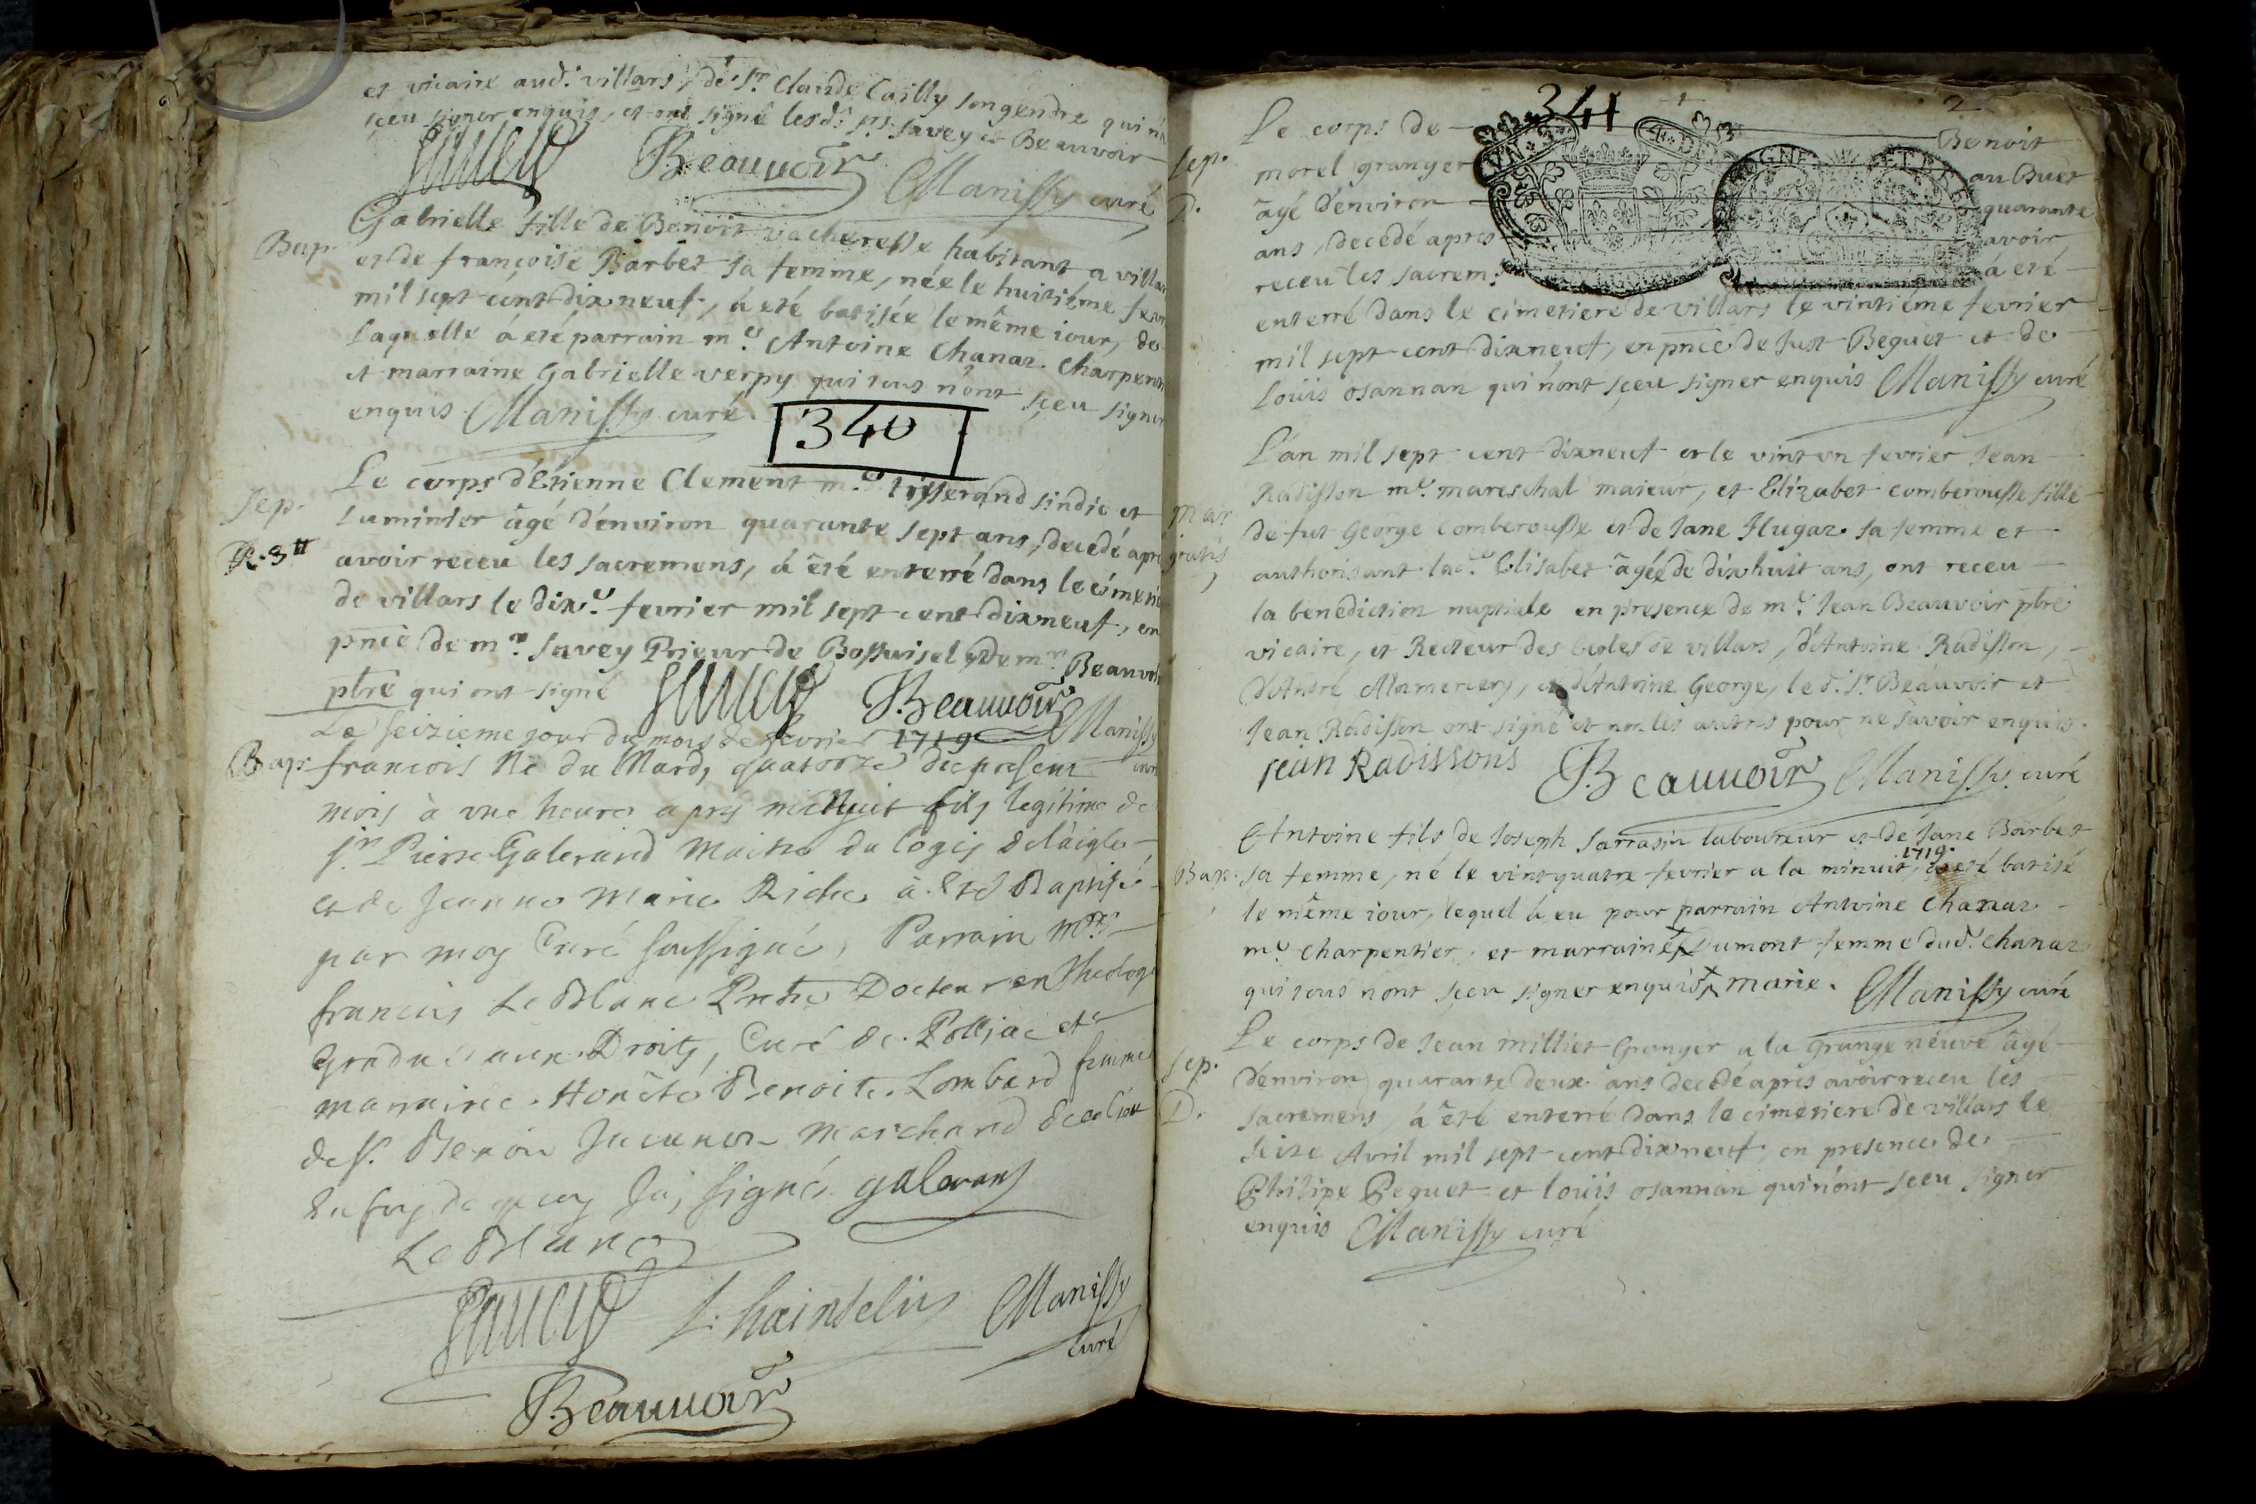 et vicaire aud.t villars, de S.r Claude Cailly son gendre qui n'a
sçeu signer enquis, et ont signé lesd.s s.rs Savey et Beauvoir
Savey Beauuoir Manissy curé
Bap. Gabrielle fille de Benoit vacheresse habitant a villar
et de françoise Barbet sa femme, née le huitiéme fevr
mil sept cent dix neuf, á eté batisée le même iour, de
laquelle á eté parrain m.e Antoine Chanaz Charpent
et marraine Gabrielle verpy qui tous n'ont sçeu signer
enquis Manissy curé
340
Sep. Le corps d'Etienne Clement m.e tisserand sindic et
R. 3 luminier âgé d'environ quarante sept ans, decedé apré
avoir receu les sacremens, á êté enterré dans le cimetie
de villars le dix.e fevrier mil sept cent dixneuf, en
pnce de m.re Savey Prieur de Bossuisel et de m.re Beauvoir
pbre qui ont signé Savey Beauuoir Manissy
curé
Bap. Le seizieme jour du mois de fevrier 1719
francois Né du Mardy quatorze du present
mois à une heure apres minuit fils legitime de
s.r Pierre Galerand Maitre du logis de l'aigle
et de Jeanne Marie Riche à Eté Baptisé
par moy Curé soussigné, Parrain M.re
francois Le Blanc Pretre Docteur en Theologie
Gradué aux Droits, Curé de Polliac et
marraine Honête Benoite Lombard femme
de s.r Benoit marchand de
En foy de quoy J'ai signé galerand
Le Blanc
Savey Manissy
curé
Beauuoir
341 2
Sep. Le corps de Benoit
D. morel granger au Buet
âgé d'environ quarante
ans, decedé apres avoir
receu les sacrem.s á eté
enterré dans le cimetiere de villars le vintiéme fevrier
mil sept cent dixneuf, en pnce de Just Beguet et de
Loüis osannan qui n'ont sçeu signer enquis Manissy curé
Mar. L'an mil sept cent dixneuf et le vint vn fevrier Jean
gratis Radisson m.e mareschal maieur, et Elizabet comberousse fille
de fut George Comberousse et de Jane Hugaz sa femme et
authorisant lad.e Elisabet âgée de dix huit ans, ont receu
la benediction nuptiale en presence de m.e Jean Beauvoir pbre
vicaire, et Recteur des Ecoles de villars, d'Antoine Radisson,
d'André Mamercery, et d'Antoine George, led. S.r Beauvoir et
Jean Radisson ont signé et non les autres pour ne savoir enquis.
jean Radissons Beauuoir Manissy curé
Antoine fils de Joseph Sarrasin laboureur et de Jane Barbet
1719.
Bap. sa femme, né le vintquatre fevrier a la minuit, a eté batisé
le même iour, lequel á eu pour parrain Antoine Chanaz
m.e Charpentier, et marraine Dumont femme dud.t Chanaz
qui tous n'ont sçeu signer enquis marie. Manissy curé
Sep. Le corps de Jean milliet Granger a la grange neuve âgé
D. d'environ quarante deux ans decedé apres avoir receu les
sacremens, á êté enterré dans le cimetiere de villars le
seize Avril mil sept cent dixneuf en presence de
Philipe Peguet et loüis osannan qui n'ont sçeu signer
enquis Manissy curé